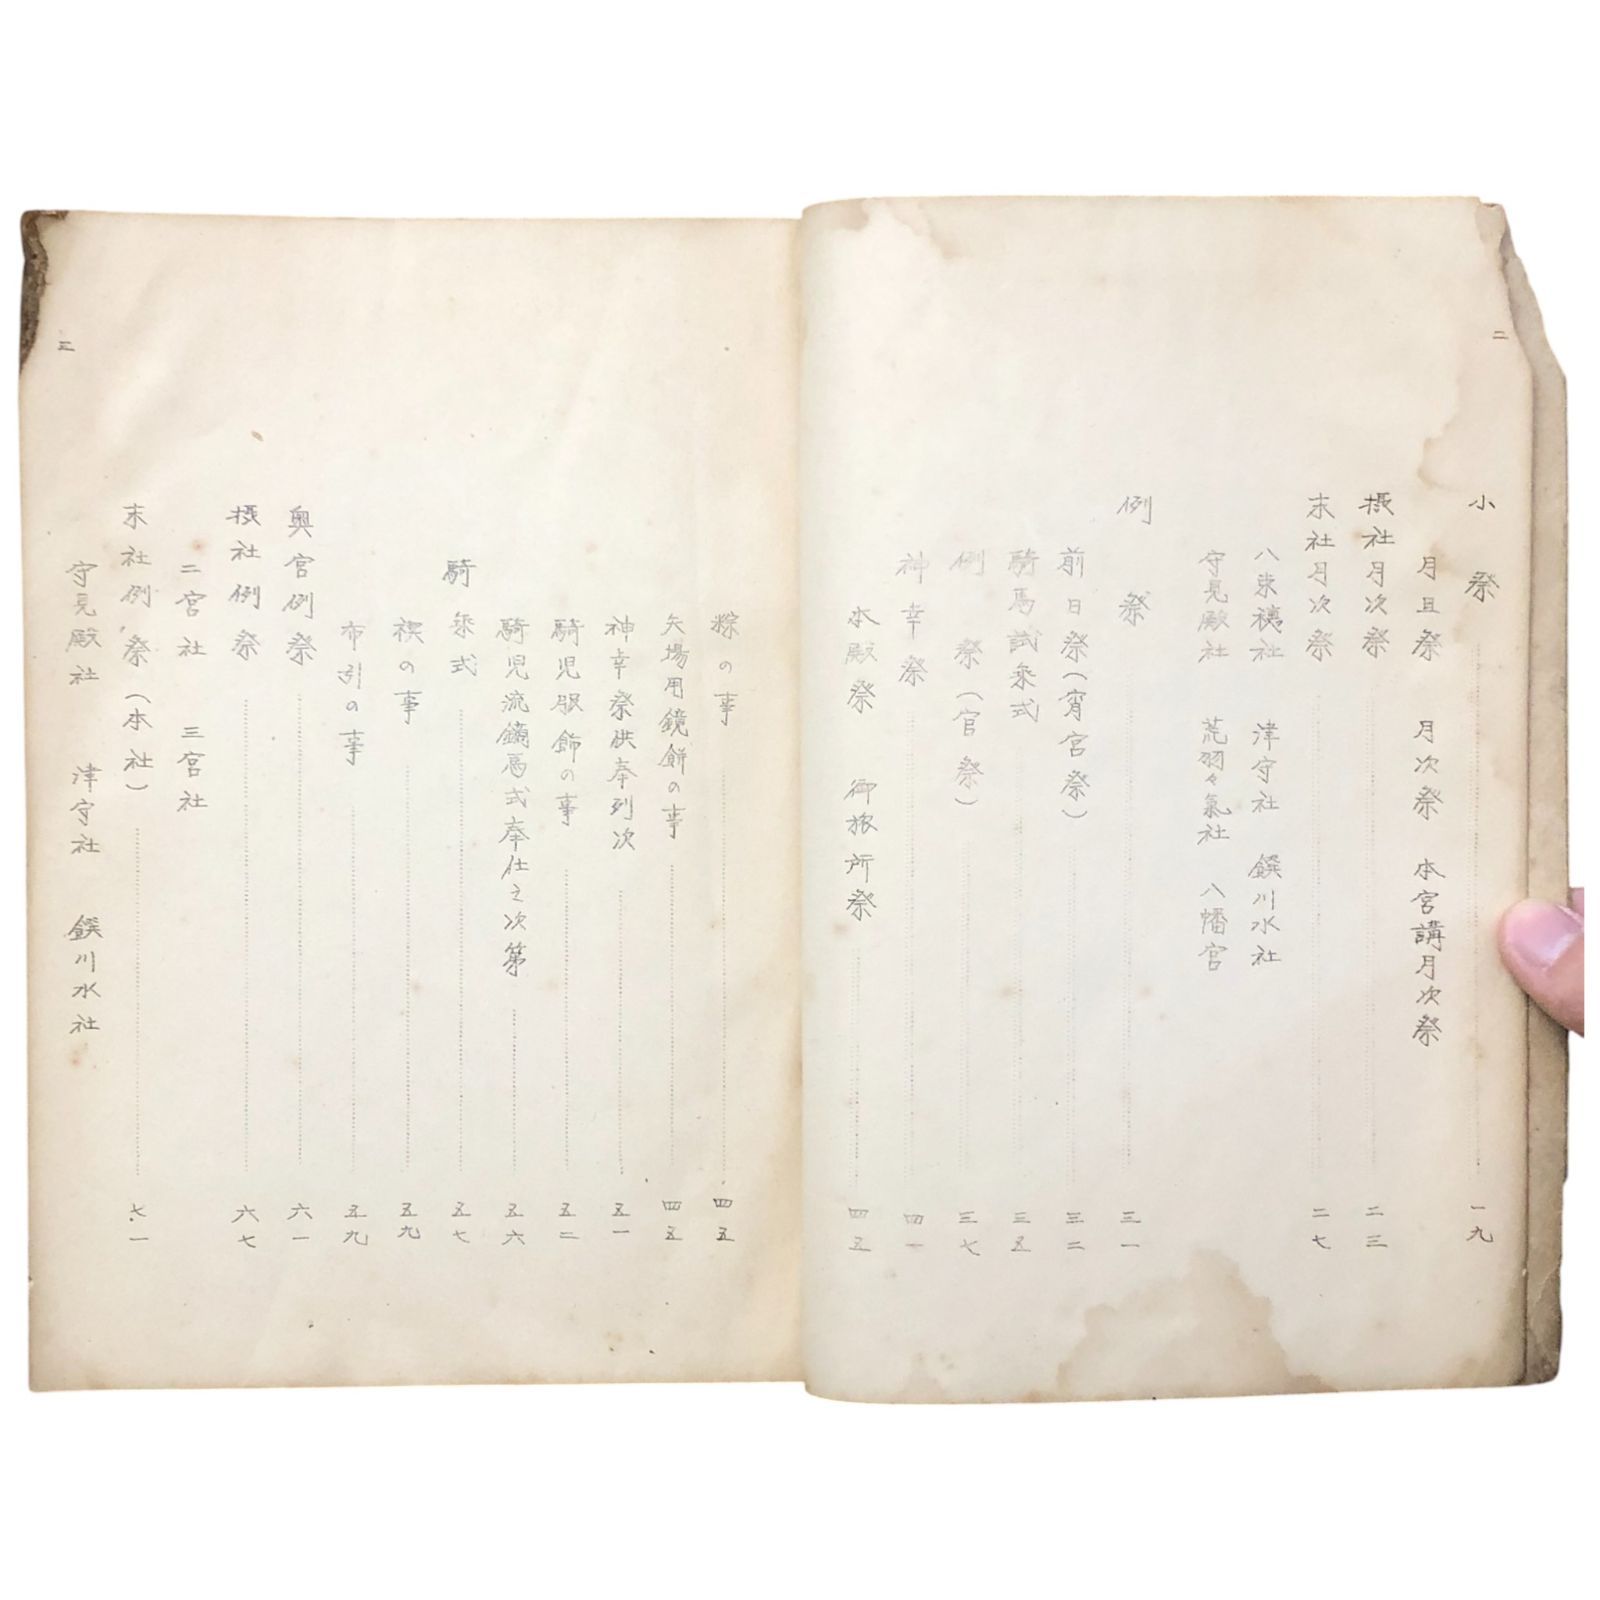 二
小祭 一九
月且祭 月次祭 本宮講月次祭
摂社月次祭 二三
末社月次祭 二七
八束穂社 津守社 鐉川水社
守見殿社 荒羽々氣社 八幡宮
例祭 三一
前日祭(宵宮祭) 三二
騎馬試乘式 三五
例祭(官祭) 三七
神幸祭 四一
本殿祭 御旅所祭 四五
粽の事 四五
矢場用鏡餅の事 四五
神幸祭供奉列次 五一
騎児服飾の事 五二
騎児流鏑馬式奉仕之次第 五六
騎乘式 五七
禊の事 五九
布引の事 五九
奥宮例祭 六一
摂社例祭 六七
二宮社 三宮社
末社例祭(本社) 七一
守見殿社 津守社 鐉川水社
三